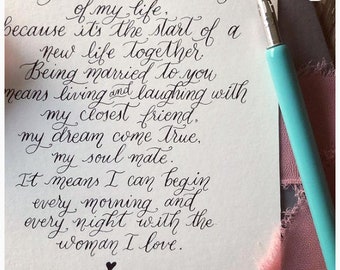 of my life.
because it's the start of a
new life together
Being married to you
means living and laughing with
my closest friend,
my dream come true,
my soul mate.
It means I can begin
every morning and
every night with the
woman I love.